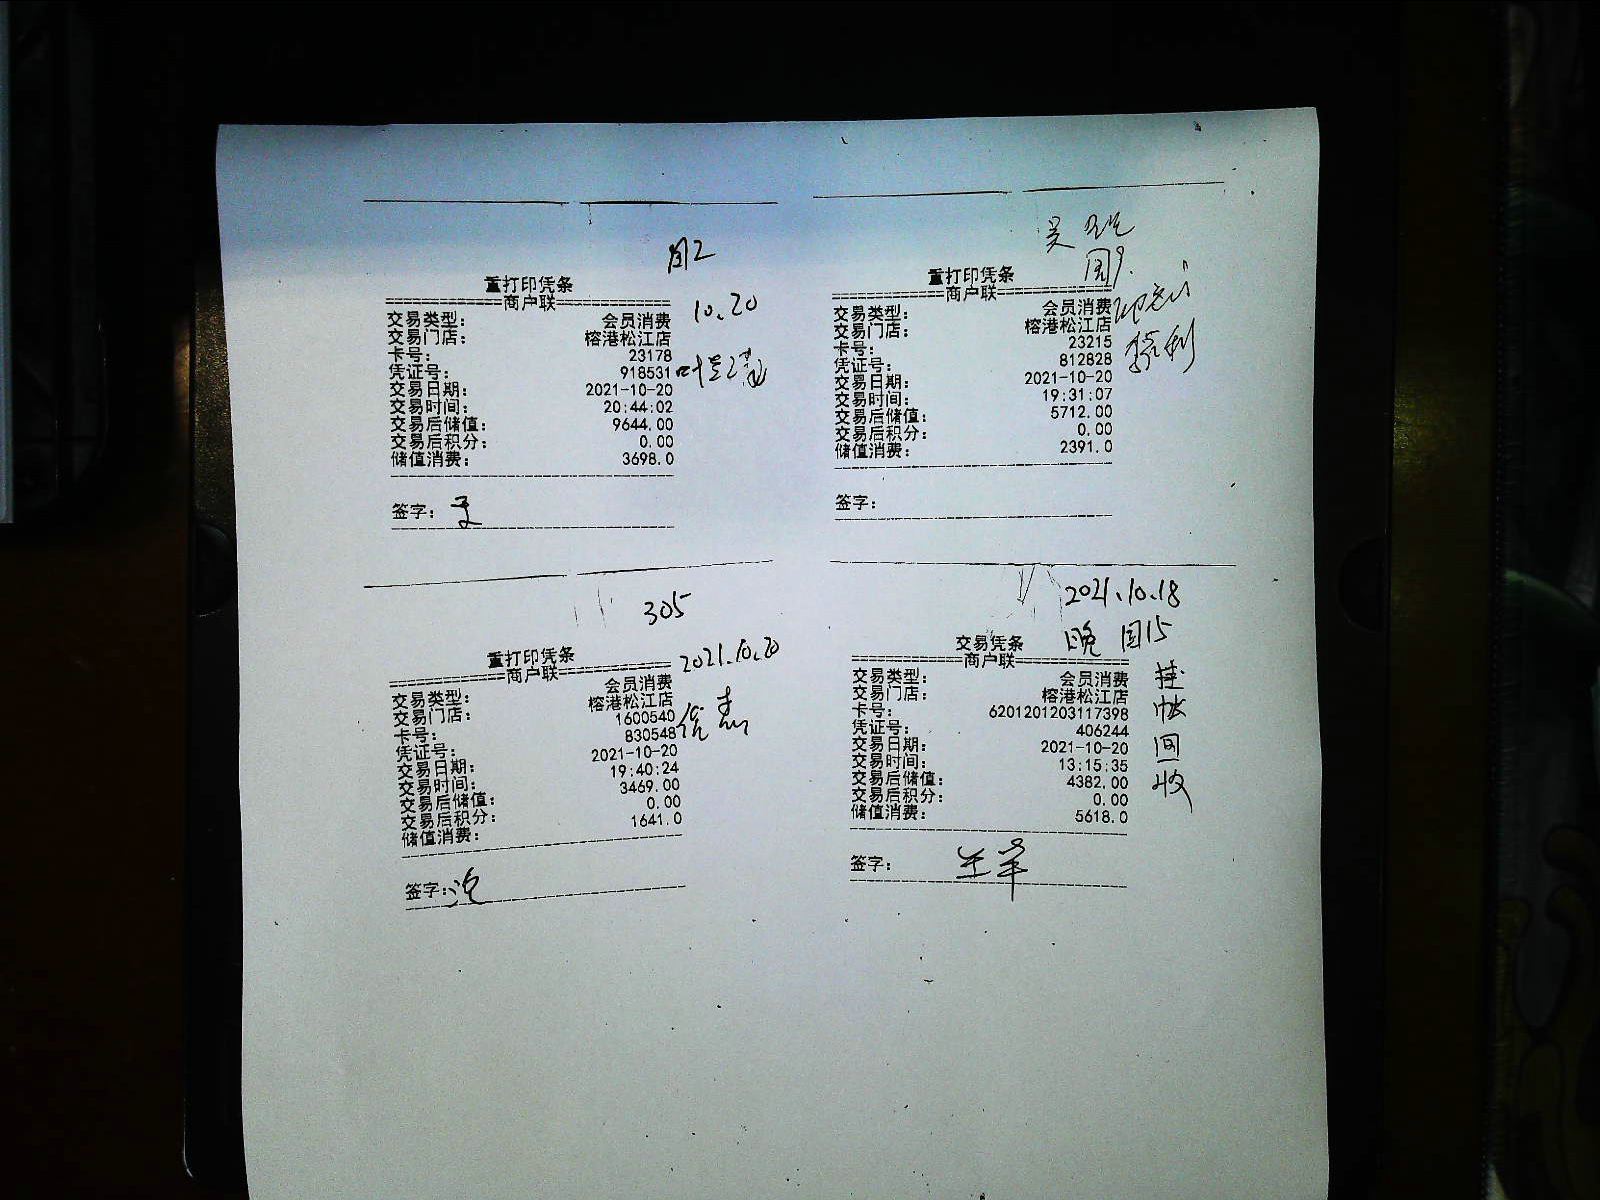 周2
重打印凭条
==============商户联==============
10.20
交易类型: 会员消费
交易门店: 榕港松江店
卡号: 23178
凭证号: 918531
交易日期: 2021-10-20
交易时间: 20:44:02
交易后储值: 9644.00
交易后积分: 0.00
储值消费: 3698.0
签字:
吴
周9.
重打印凭条
==============商户联==============
交易类型: 会员消费
交易门店: 榕港松江店
卡号: 23215
凭证号: 812828
交易日期: 2021-10-20
交易时间: 19:31:07
交易后储值: 5712.00
交易后积分: 0.00
储值消费: 2391.0
签字:
305
重打印凭条
==============商户联==============
2021.10.20
交易类型: 会员消费
交易门店: 榕港松江店
卡号: 1600540
凭证号: 830548
交易日期: 2021-10-20
交易时间: 19:40:24
交易后储值: 3469.00
交易后积分: 0.00
储值消费: 1641.0
签字:
2021.10.18
晚 周15
交易凭条
==============商户联==============
交易类型: 会员消费
交易门店: 榕港松江店
卡号: 6201201203117398
凭证号: 406244
交易日期: 2021-10-20
交易时间: 13:15:35
交易后储值: 4382.00
交易后积分: 0.00
储值消费: 5618.0
挂帐回收
签字: